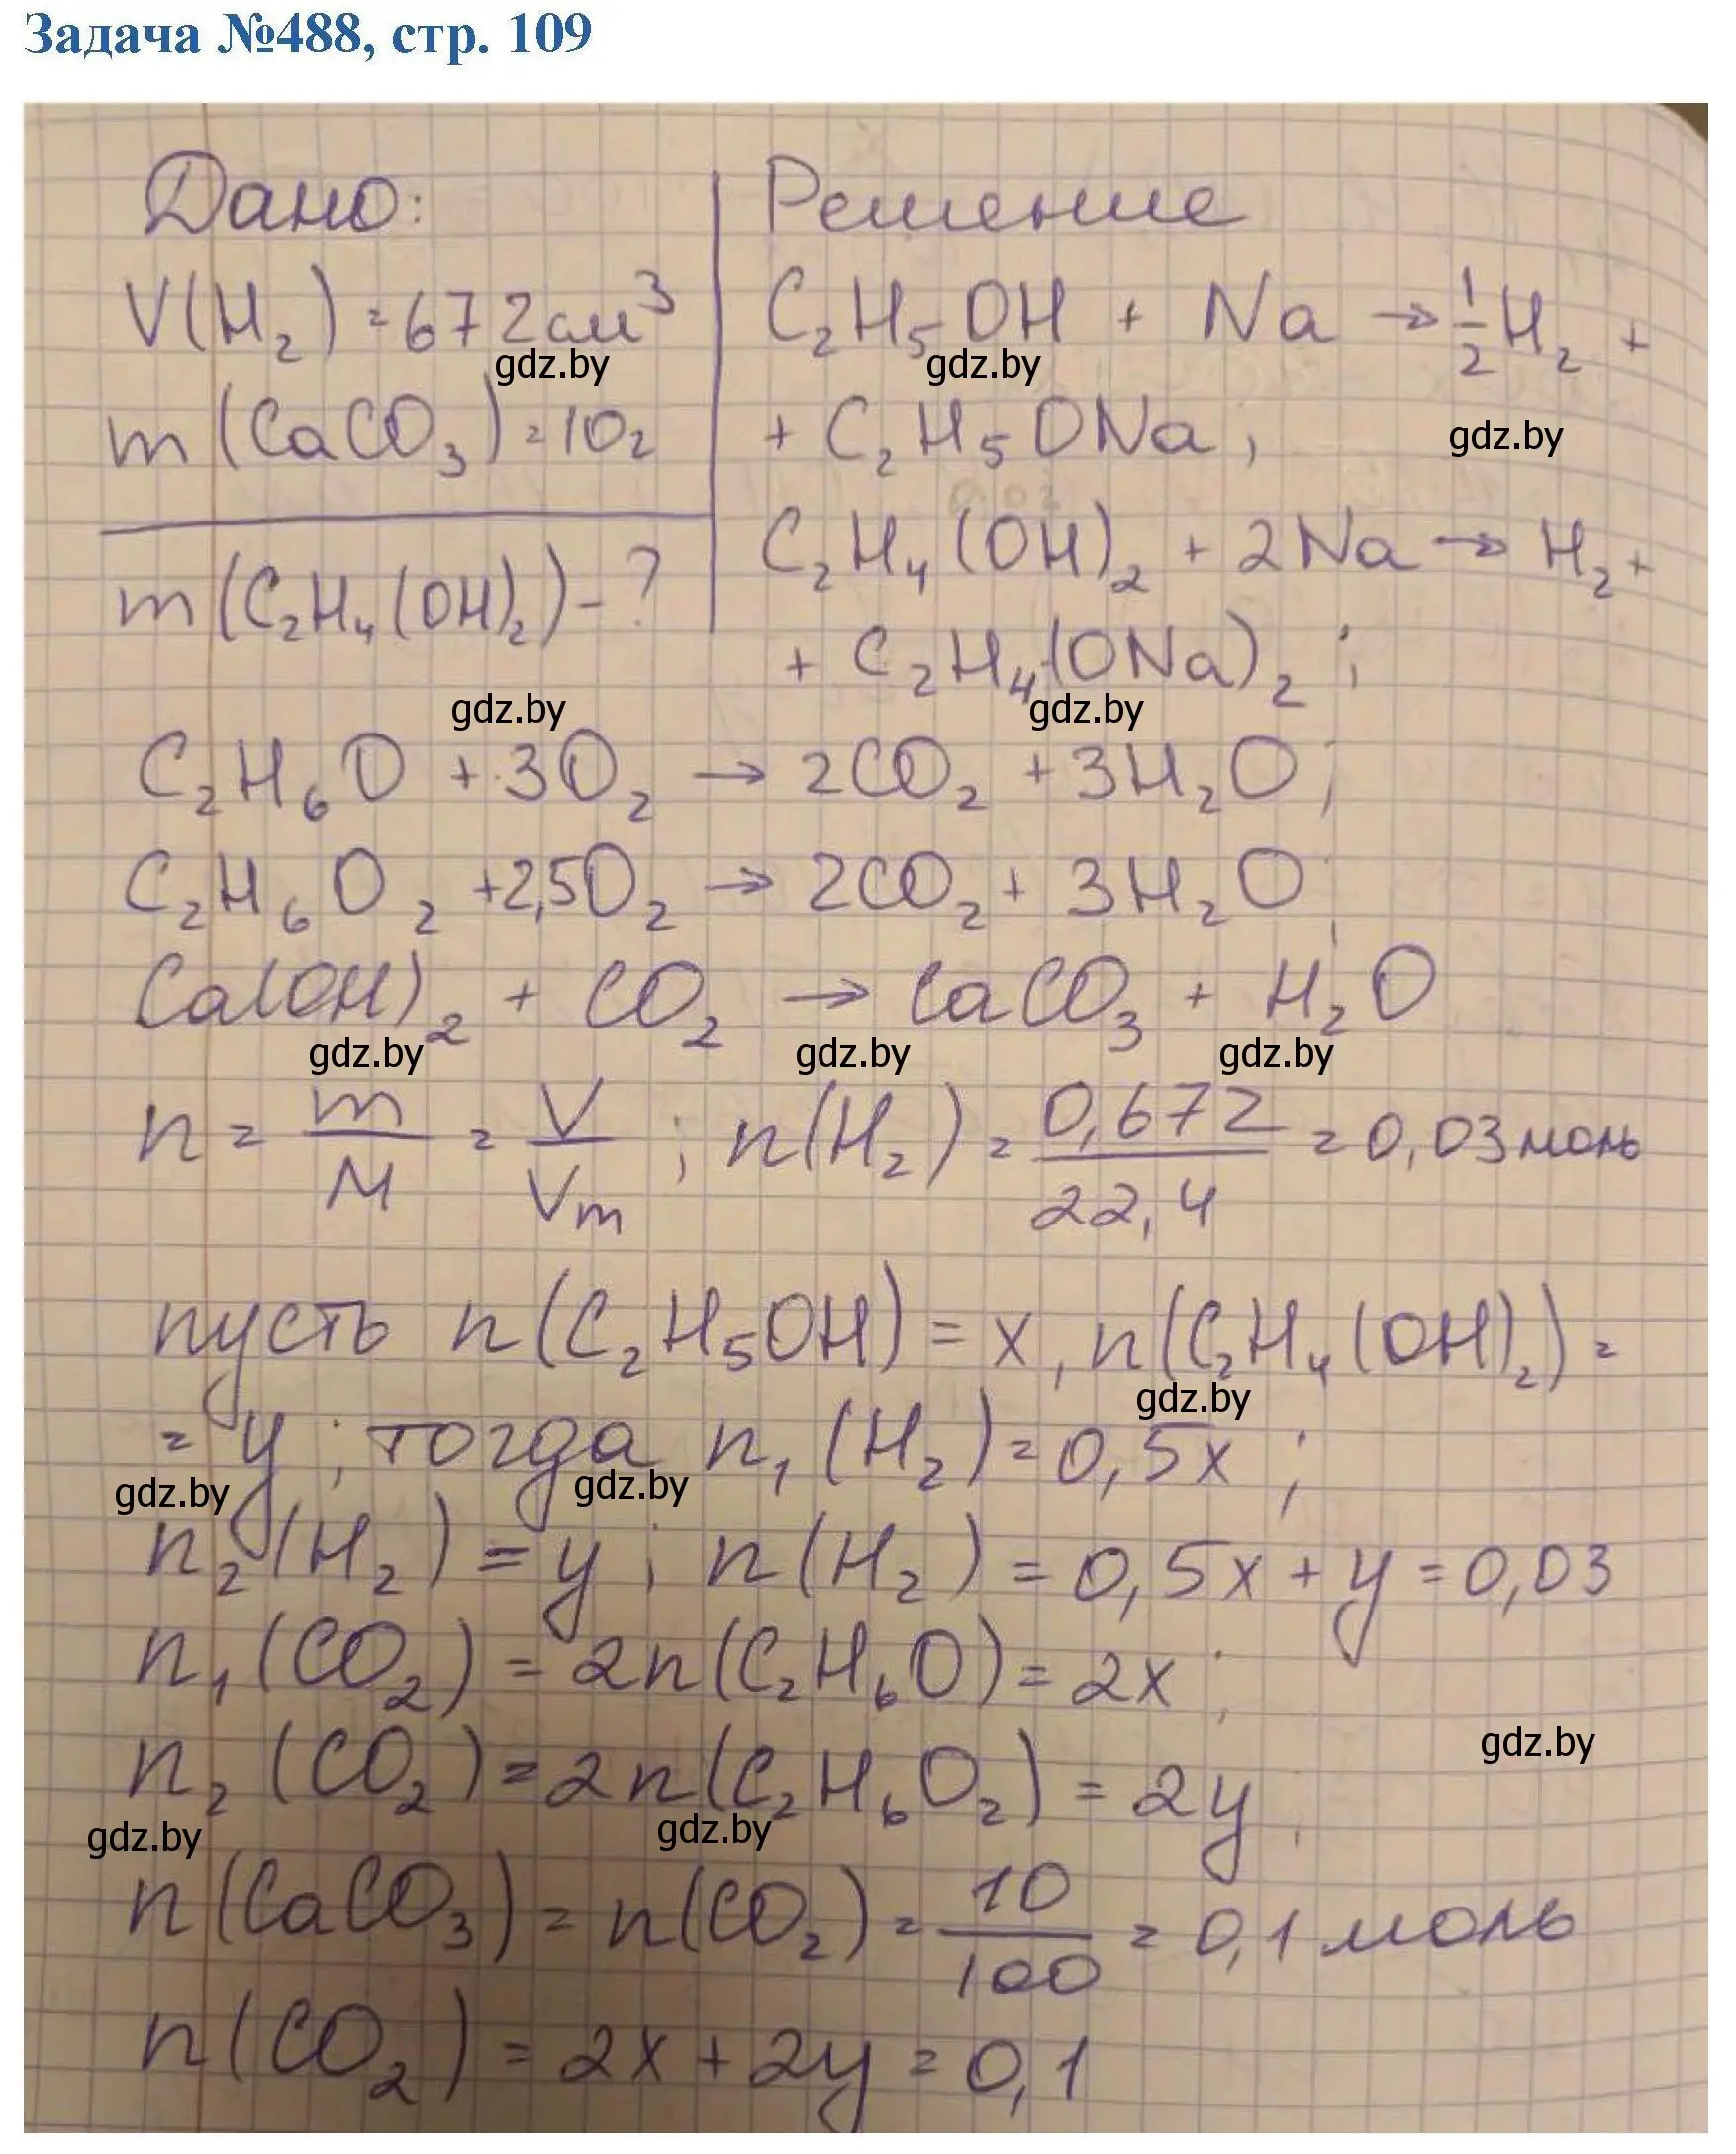 Задача №488, стр. 109
Дано:
V(H₂) = 672 см³
m(CaCO₃) = 10г
m(C₂H₄(OH)₂) - ?
Решение
C₂H₅OH + Na → ½H₂ +
+ C₂H₅ONa;
C₂H₄(OH)₂ + 2Na → H₂ +
+ C₂H₄(ONa)₂;
C₂H₆O + 3O₂ → 2CO₂ + 3H₂O;
C₂H₆O₂ + 2,5O₂ → 2CO₂ + 3H₂O;
Ca(OH)₂ + CO₂ → CaCO₃ + H₂O
n = m/M = V/Vm; n(H₂) = 0,672/22,4 = 0,03 моль
пусть n(C₂H₅OH) = x, n(C₂H₄(OH)₂) =
= y; тогда n₁(H₂) = 0,5x;
n₂(H₂) = y; n(H₂) = 0,5x + y = 0,03
n₁(CO₂) = 2n(C₂H₆O) = 2x;
n₂(CO₂) = 2n(C₂H₆O₂) = 2y;
n(CaCO₃) = n(CO₂) = 10/100 = 0,1 моль
n(CO₂) = 2x + 2y = 0,1
gdz.by
gdz.by
gdz.by
gdz.by
gdz.by
gdz.by
gdz.by
gdz.by
gdz.by
gdz.by
gdz.by
gdz.by
gdz.by
gdz.by